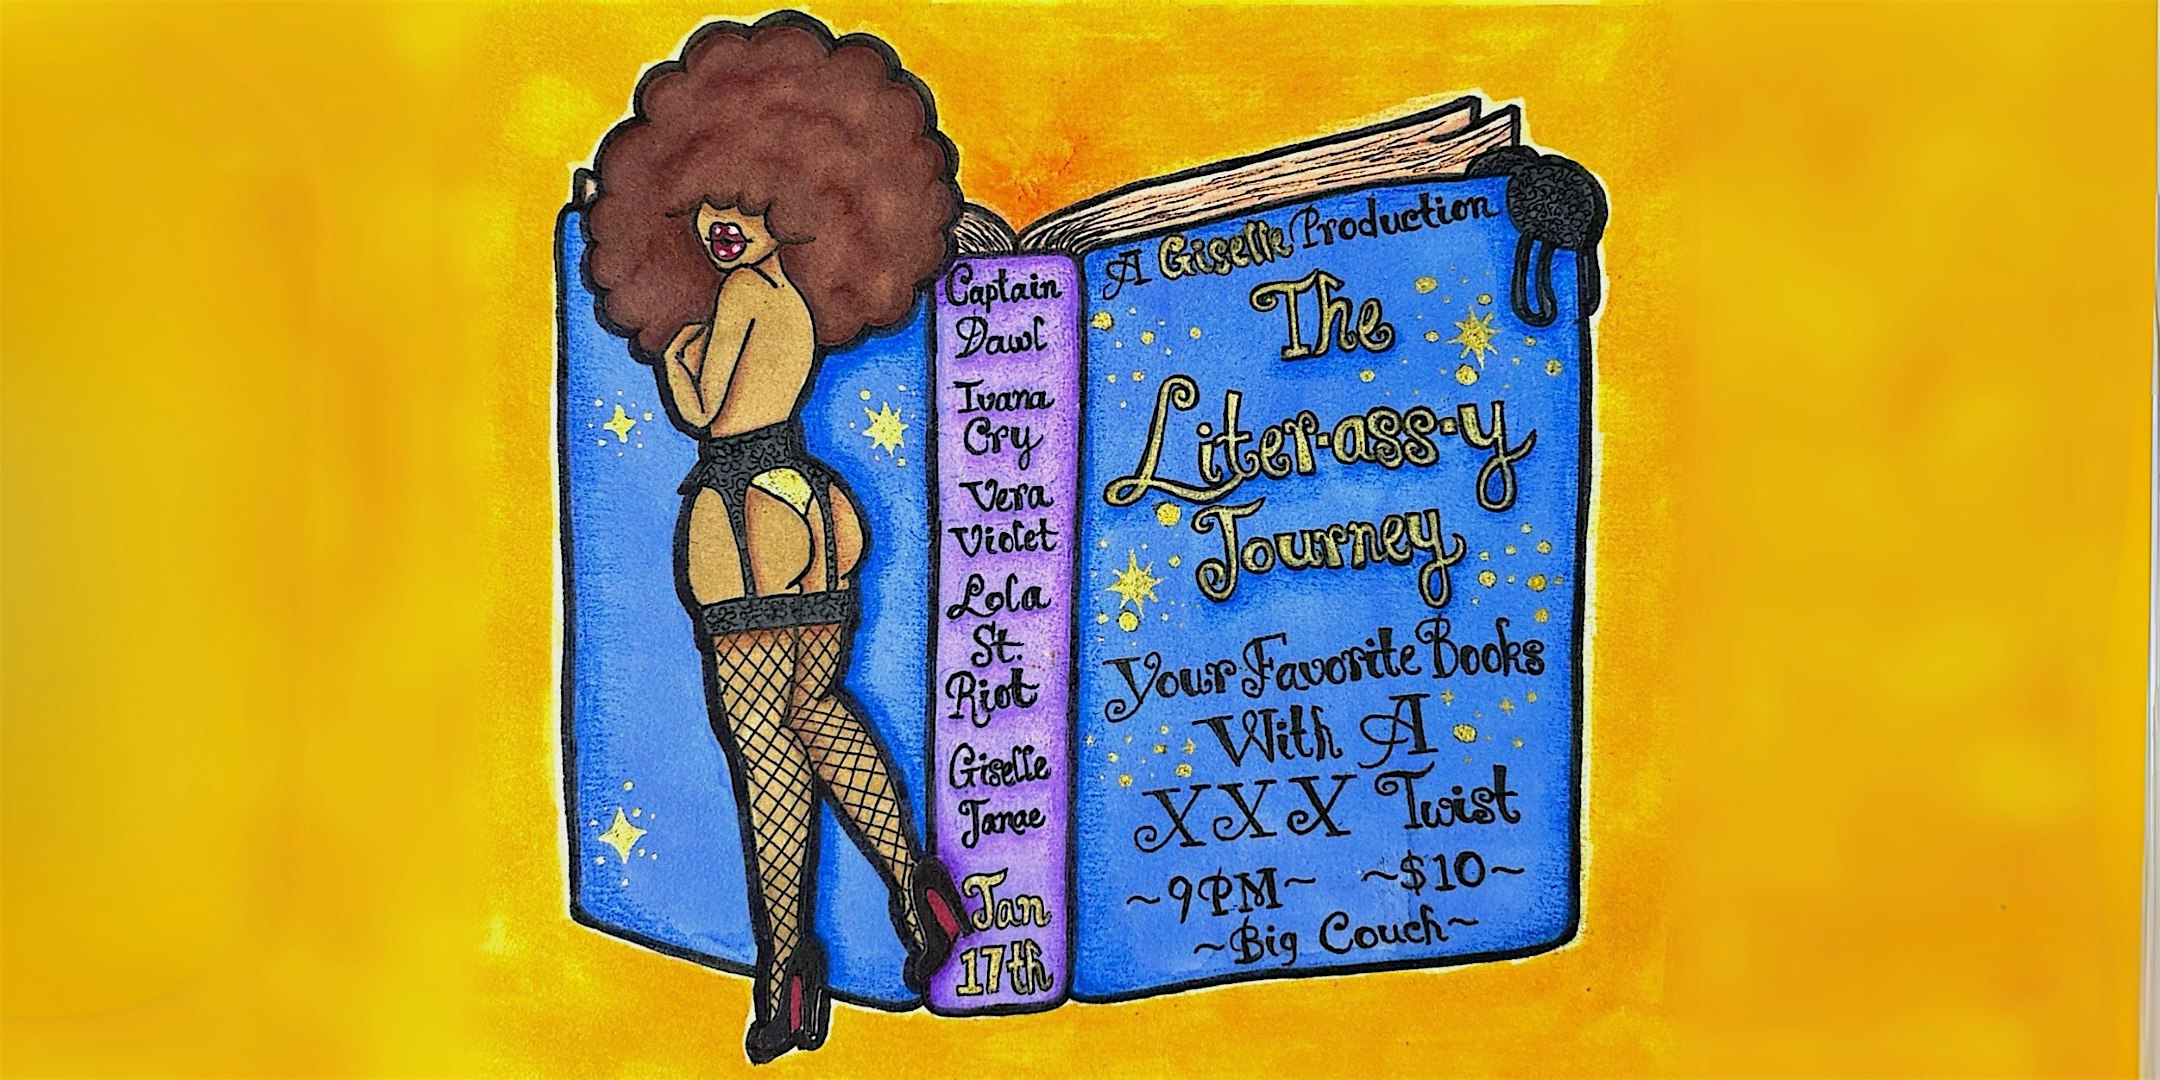 Captain
Dawl
Ivana
Cry
Vera
Violet
Lola
St.
Riot
Giselle
Janae
Jan
17th
A Giselle Production
The
Liter-ass-y
Journey
Your Favorite Books
With A
XXX Twist
~9PM~ ~$10~
~Big Couch~